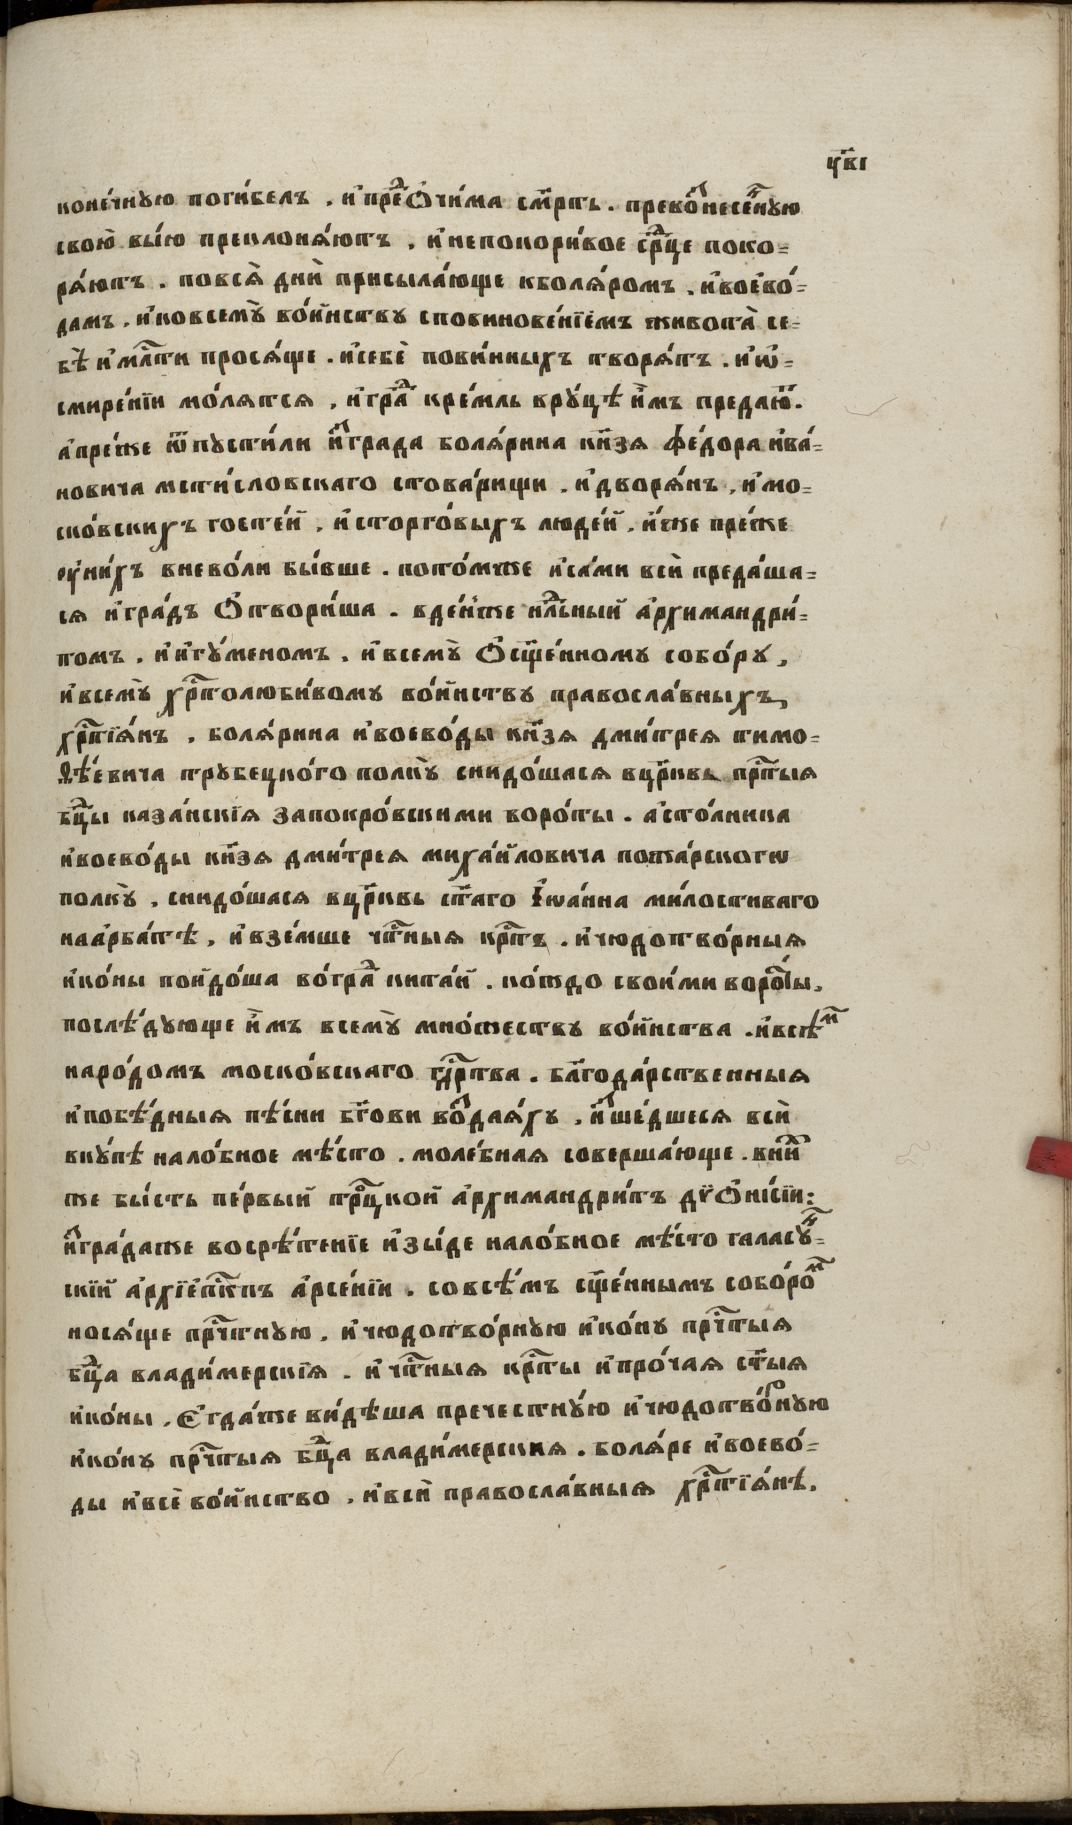 ц҃ві
коне́чнꙋю поги́бель . и҆пре́дⷣѻчи́ма см҃рть . превоⷥ҇несе́нⸯꙋю
свою̀ вы́ю преклонѧ́ютъ , и҆непокори́вое ср҃це поко=
рѧ́ютъ . повсѧ̀ днѝ присыла́юще кболѧ́ромъ . и҆воево́=
дамъ . и҆ковсемꙋ̀ во́йнствꙋ сповинове́нїемъ живота̀ се=
бѣ̀ и҆мл҃ти просѧ́ще . и҆себѐ пови́нныхъ творѧ́тъ . и҆ѡ҆=
смире́нїи мо́лѧтсѧ , и҆гра́дⷣ кре́мль врꙋ́цѣ и҆̀мъ предаю́тⷮ.
а҆пре́же ѿпꙋсти́ли и҆ⷥ҇града болѧ́рина кн҃зѧ фе́дора и҆ва́=
новича мсти́словскаго стова́рищи . и҆дворѧ́нъ , и҆мо=
ско́вскихъ госте́й , и҆сторго́выхъ люде́й , и҆́же пре́же
ᲂу҆ни́хъ внево́ли бы́вше . пото́мже и҆са́ми всѝ преда́ша=
сѧ и҆гра́дъ ѻ҆твори́ша . вде́нже и҆лⷣ҇ьный а҆рхимандри́=
томъ . и҆и҆гꙋ́меномъ . и҆всемꙋ̀ ѻ҆сщ҃е́нномꙋ собо́рꙋ ,
и҆всемꙋ̀ хрⷭ҇толюби́вомꙋ во́йнствꙋ правосла́вныхъ
хрⷭ҇тїѧ́нъ , болѧ́рина и҆воево́ды кн҃зѧ дми́трея тимо=
ѳѣ́евича трꙋбецко́го полкꙋ̀ снидо́шасѧ вцр҃ковь пр҃тыѧ
бц҃ы каза́нскїѧ запокро́вскими воро́ты . а҆сто́лника
и҆воево́ды кн҃зѧ дми́трея миха́йловича пожа́рскогѡ
полкꙋ̀ , снидо́шасѧ вцр҃ковь ст҃аго і҆ѡа́нна ми́лостиваго
наа҆рба́тѣ , и҆взе́мше чтⷭ҇ныѧ крⷭ҇тъ . и҆чюдотво́рныѧ
и҆ко́ны пойдо́ша во́гра́дⷣ кита́й . ко́ждо свои́ми воро́тⷮы ,
послѣ́дꙋюще и҆̀мъ всемꙋ̀ мно́жествꙋ во́йнства . и҆всѣ́мⷨ
наро́домъ моско́вскаго црⷭ҇тва . бл҃года́рственныѧ
и҆побѣ́дныѧ пѣ́сни бг҃ови воⷥ҇даѧ́хꙋ , и҆ⷥ҇ше́дшесѧ всѝ
вкꙋ́пѣ нало́бное мѣ́сто . моле́бнаѧ соверша́юще . вни́хⷯ
же бы́сть пе́рвый трⷪ҇цкой а҆рхимандри́тъ дїѻни́сїи :
и҆ⷥ҇гра́даже восрѣ́тенїе и҆зы́де нало́бное мѣ́сто галасꙋ́нⷩ=
скїй а҆рхїе҆пⷭ҇кпъ а҆рсе́нїи . совсѣ́мъ сщ҃е́ннымъ собо́ромⷨ
носѧ́ще прчⷭ҇тнꙋю , и҆чюдотво́рнꙋю и҆ко́нꙋ прчⷭ҇тыѧ
бц҃а влади́мерскїѧ . и҆чтⷭ҇ныѧ крⷭ҇ты и҆про́чаѧ ст҃ыѧ
и҆ко́ны . є҆гда́же ви́дѣша пречестнꙋ́ю и҆чюдотво́рⷬнꙋю
и҆ко́нꙋ прчⷭ҇тыѧ бц҃а влади́мерскиѧ . болѧ́ре и҆воево́=
ды и҆всѐ во́йнство , и҆всѝ правосла́вныѧ хрⷭ҇тїѧ́нѣ ,